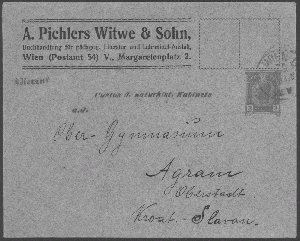 A. Pichlers Witwe & Sohn,
Buchhandlung für pädagog. Literatur und Lehrmittel-Anstalt,
Wien (Postamt 54) V., Margaretenplatz 2.
Custos d. naturhist. Kabinets
Ober-Gymnasium
Agram
Oberstadt
Kroat.-Slavon.